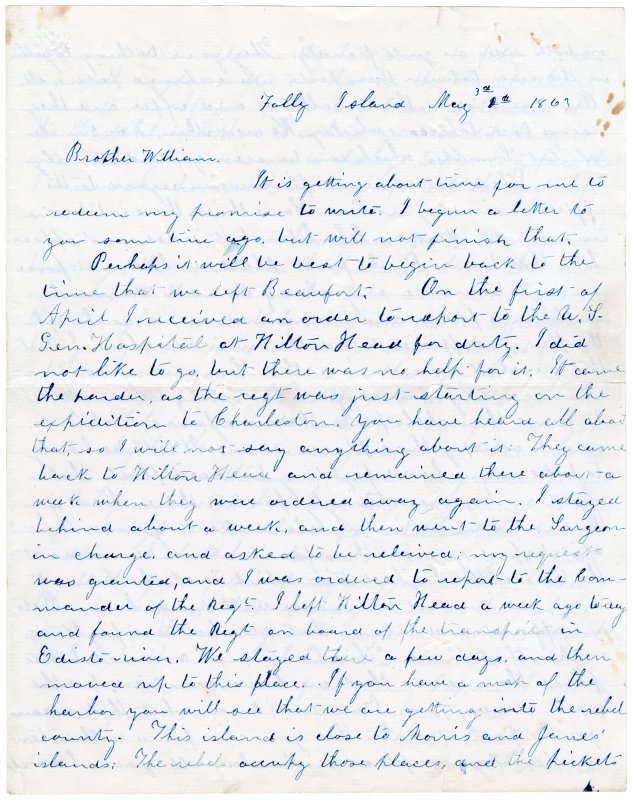 Folly Island May 3rd 1863
Brother William.
It is getting about time for me to
redeem my promise to write. I begun a letter to
you some time ago, but will not finish that.
Perhaps it will be best to begin back to the
time that we left Beaufort. On the first of
April I received an order to report to the U.S.
Gen. Hospital at Hilton Head for duty. I did
not like to go, but there was no help for it. It came
the harder, as the regt was just starting on the
expidition to Charleston. You have heard all about
that, so I will not say anything about it. They came
back to Hilton Head and remained there about a
week when they were ordered away again. I stayed
behind about a week, and then went to the Surgeon
in charge, and asked to be releived; my request
was granted, and I was ordered to report to the Com-
mander of the Regt. I left Hilton Head a week ago today
and found the Regt on board of the transport in
Edisto river. We stayed there a few days, and then
moved up to this place. If you have a map of the
harbor you will see that we are getting into the rebel
county. This island is close to Morris and James'
islands; The rebels occupy those places, and the pickets